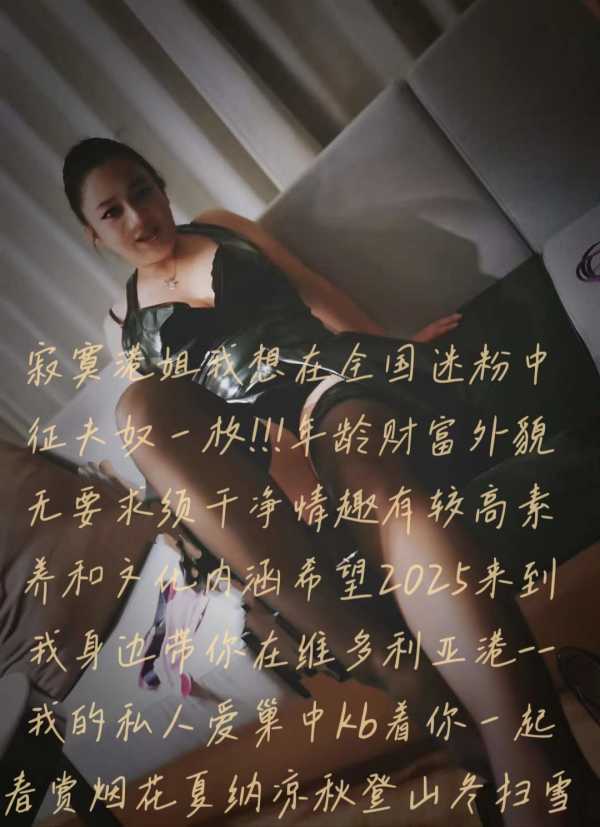 寂寞港姐我想在全国迷粉中
征夫奴一枚!!!年龄财富外貌
无要求须干净情趣有较高素
养和文化内涵希望2025来到
我身边带你在维多利亚港--
我的私人爱巢中kb着你一起
春赏烟花夏纳凉秋登山冬扫雪